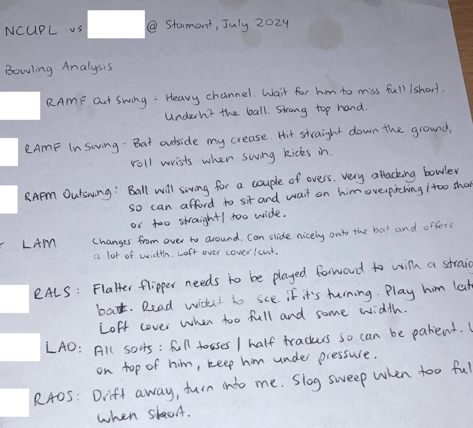 NCUPL vs @ Stormont, July 2024
Bowling Analysis
RAMF Out Swing : Heavy channel. Wait for him to miss full/short.
Underhit the ball. Strong top hand.
RAMF In Swing - Bat outside my crease. Hit straight down the ground,
roll wrists when swing kicks in.
RAFM Outswing: Ball will swing for a couple of overs. Very attacking bowler
so can afford to sit and wait on him overpitching / too
or too straight / too wide.
LAM Changes from over to around. Can slide nicely onto the bat and offers
a lot of width. Loft over cover/cut.
RALS: Flatter flipper needs to be played forward to with a
bat. Read wicket to see if it's turning. Play him
Loft cover when too full and some width.
LAO: All sorts : full tosses / half trackers so can be patient.
on top of him, keep him under pressure.
RAOS: Drift away, turn into me. Slog sweep when too
when short.